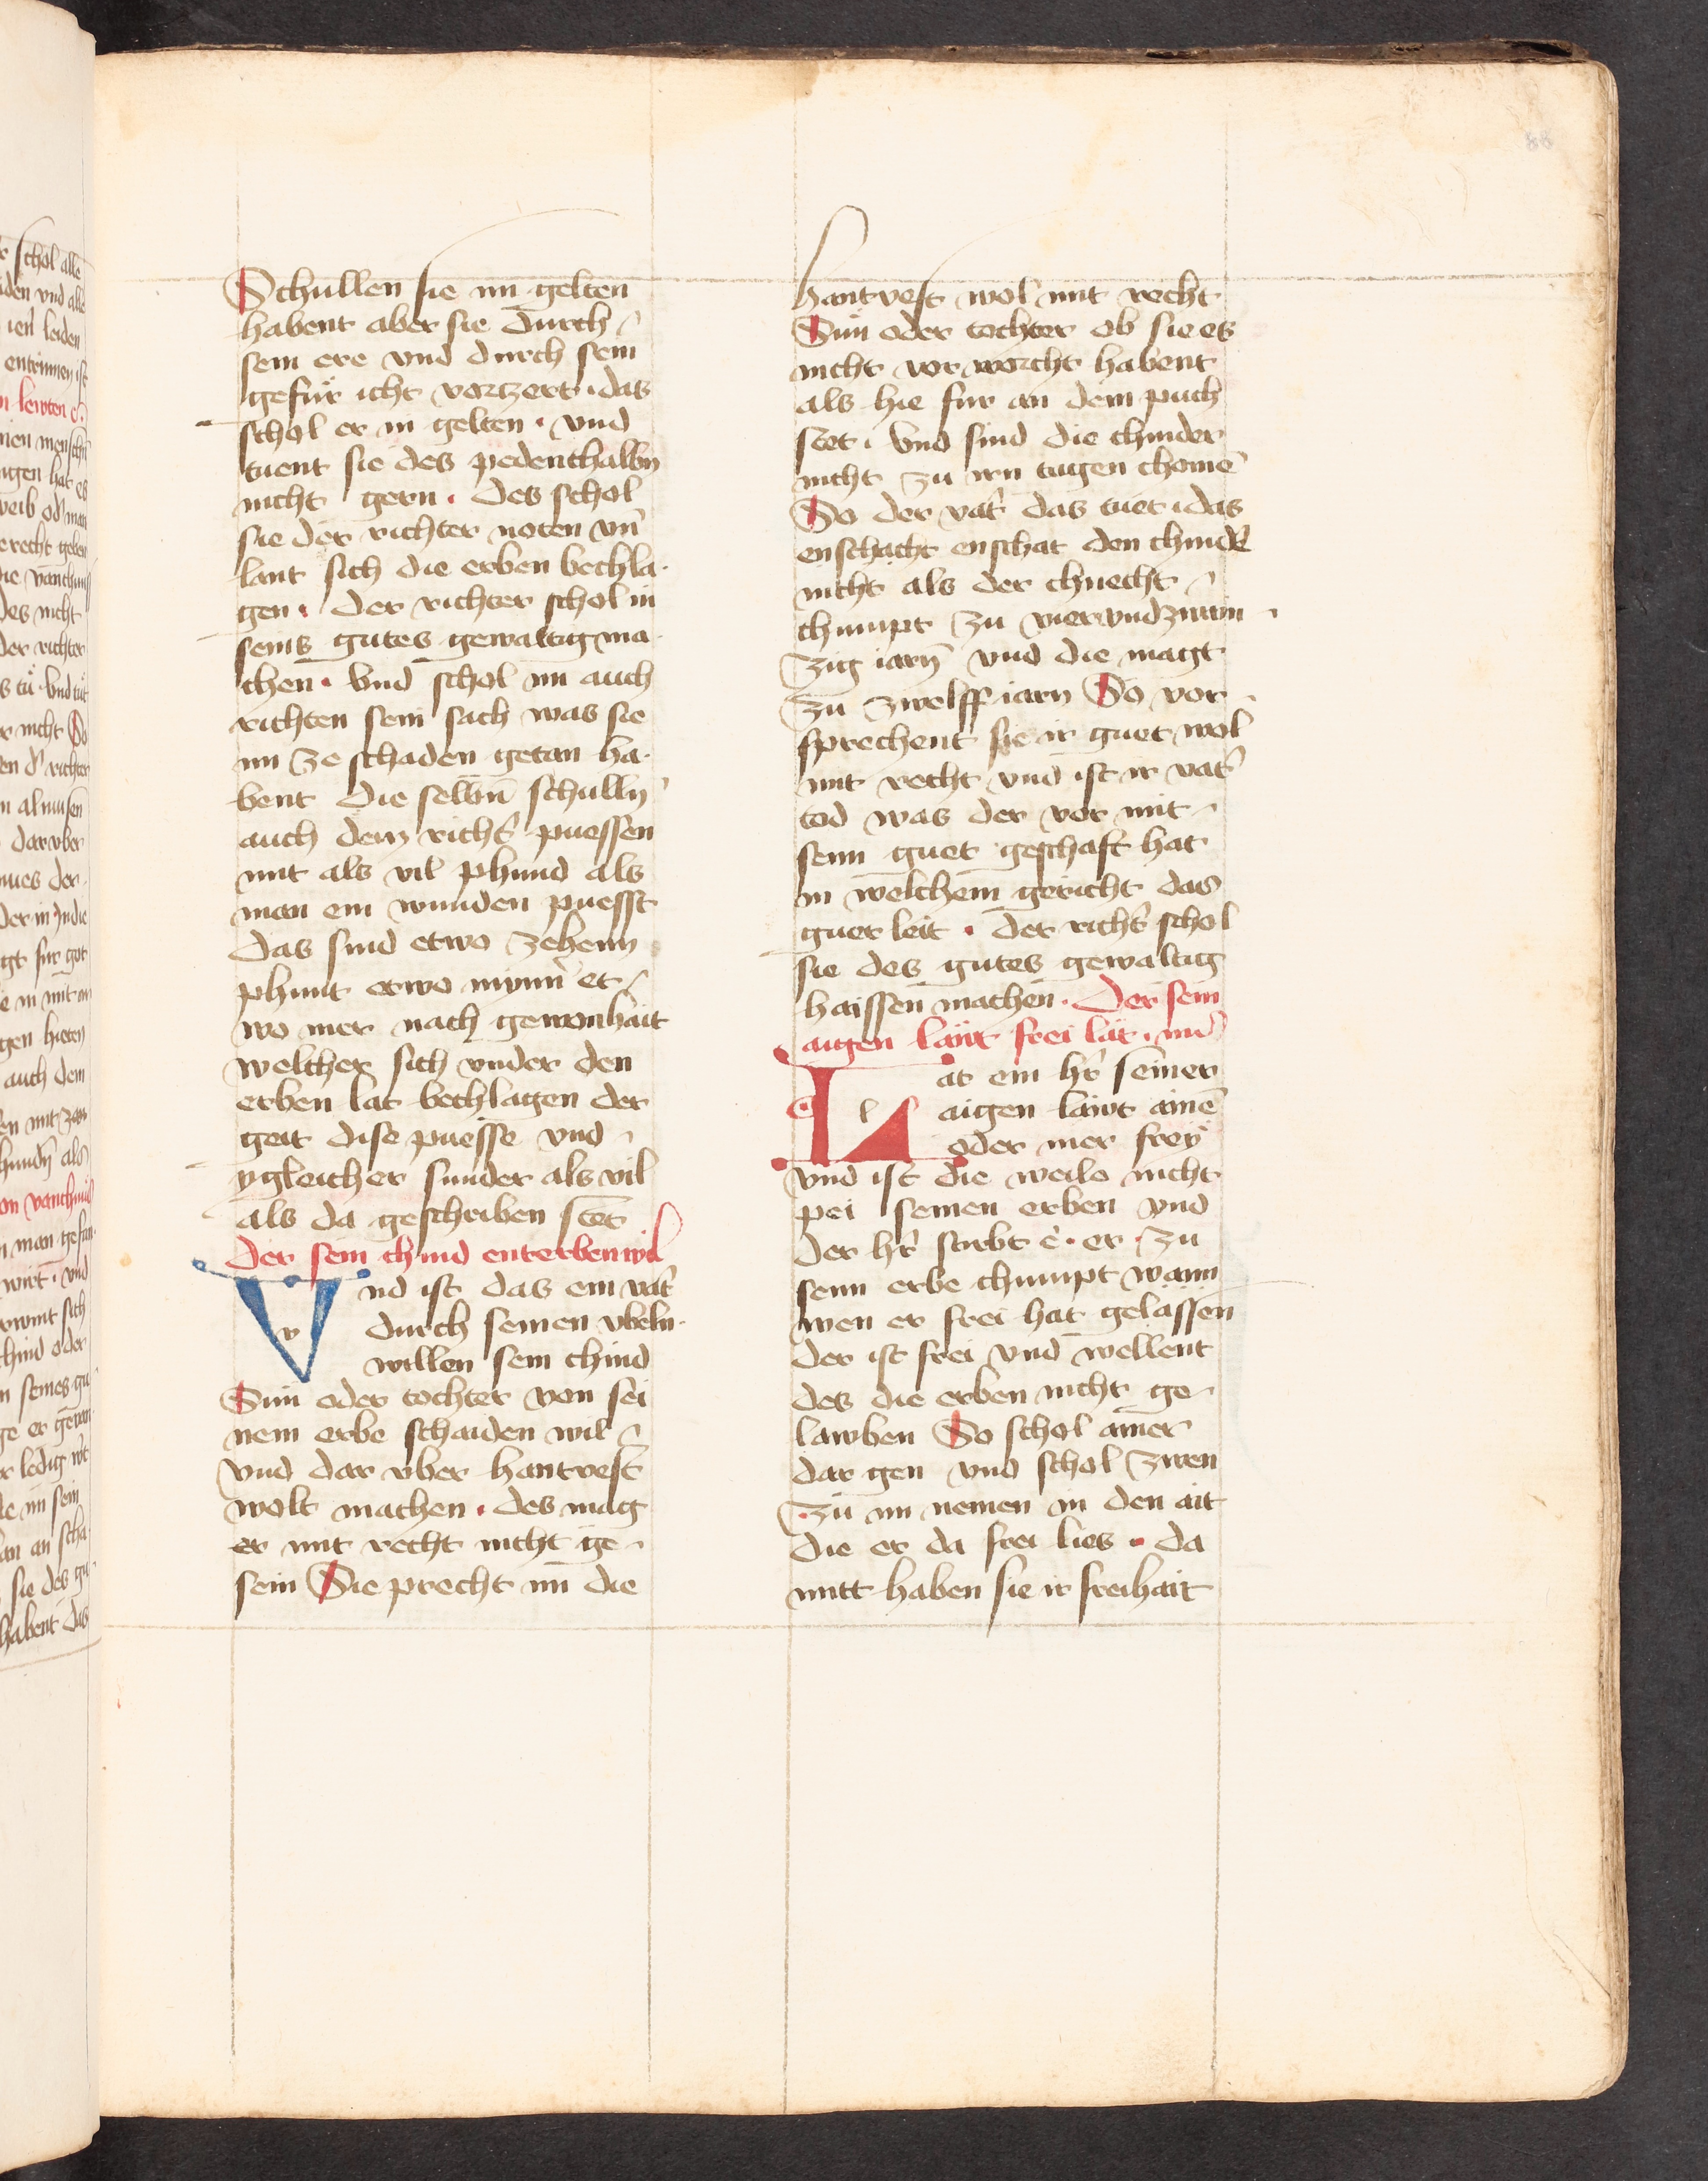 Schullen sie im gelten
habent aber sie durch
sein ere vnd durch sein
gefuͤr icht vorczert · das
schol er in gelten · vnd
tuent sie des pedenthalbn̄
nicht gern · des schol
sie der richter noten vn̄
lant sich die erben bechla-
gen · der richter schol in
seins gutes gewaltig ma-
chen · vnd schol im auch
richten sein sach was sie
im ze schaden getan ha-
bent die selbn̄ schulln̄
auch dem richt͛ puessen
mit als vil phund als
man ein wunden puesst
das sind etwo zehenn
phunt etwo mynn͛ et-
wo mer nach gewonhait
welcher sich vnder den
erben lat bechlagen der
geit dise puesse vnd
ygleicher sunder als vil
als da geschriben stet
der sein chind enterben wil
V nd ist das ein vat͛
v durch seinen vbeln
willen sein chind
Sun oder tochter von sei
nem erbe schaiden wil
vnd dar vber hantvest
wolt machen · des mag
er mit recht nicht ge-
sein Sie precht im die
hantvest wol mit recht
Sun oder tochter ob sie es
nicht vor worcht habent
als hie fur an dem puch
stet · vnd sind die chinder
nicht zu irn tagen chomē
So der vat͛ das tuet · das
enschacht enschat den chind͛
nicht als der chnecht
chumpt zu vierundzwen
zig iarn̄ vnd die magt
zu zwelff iarn So vor-
sprechent sie ir guet wol
mit recht vnd ist ir vat͛
tod was der vor mit
seim guet geschaft hat
in welchem gericht das
guet leit · der richt͛ schol
sie des gutes gewaltig
haissen machen · Der sein
aigen läwt frei lät · etc
L at ein h͛r seiner
l aigen läwt ainē
oder mer frey
vnd ist die weile nicht
pei seinen erben vnd
der h͛r stirbt e · er · zu
seim erbe chumpt wann
wen er frei hat gelassen
der ist frei vnd wellent
des die erben nicht ge-
lawben So schol ainer
dar gen vnd schol zwen
zu im nemen in den ait
die er da frei lies · da
mitt haben sie ir freihait